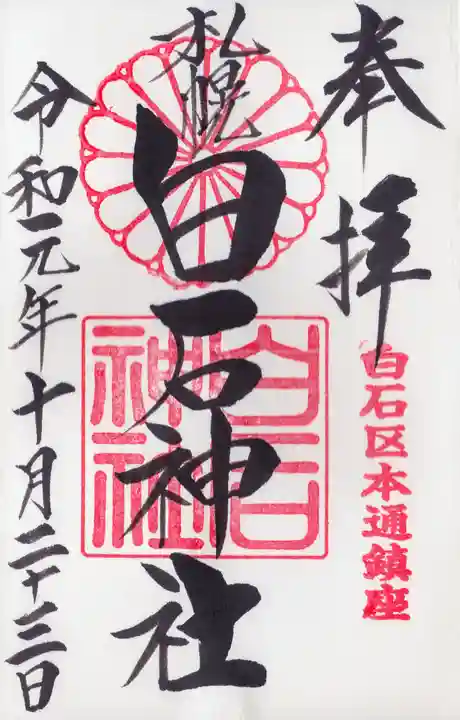 奉拝
白石区本通鎮座
札幌
白石神社
白石
神社
令和元年十月二十三日